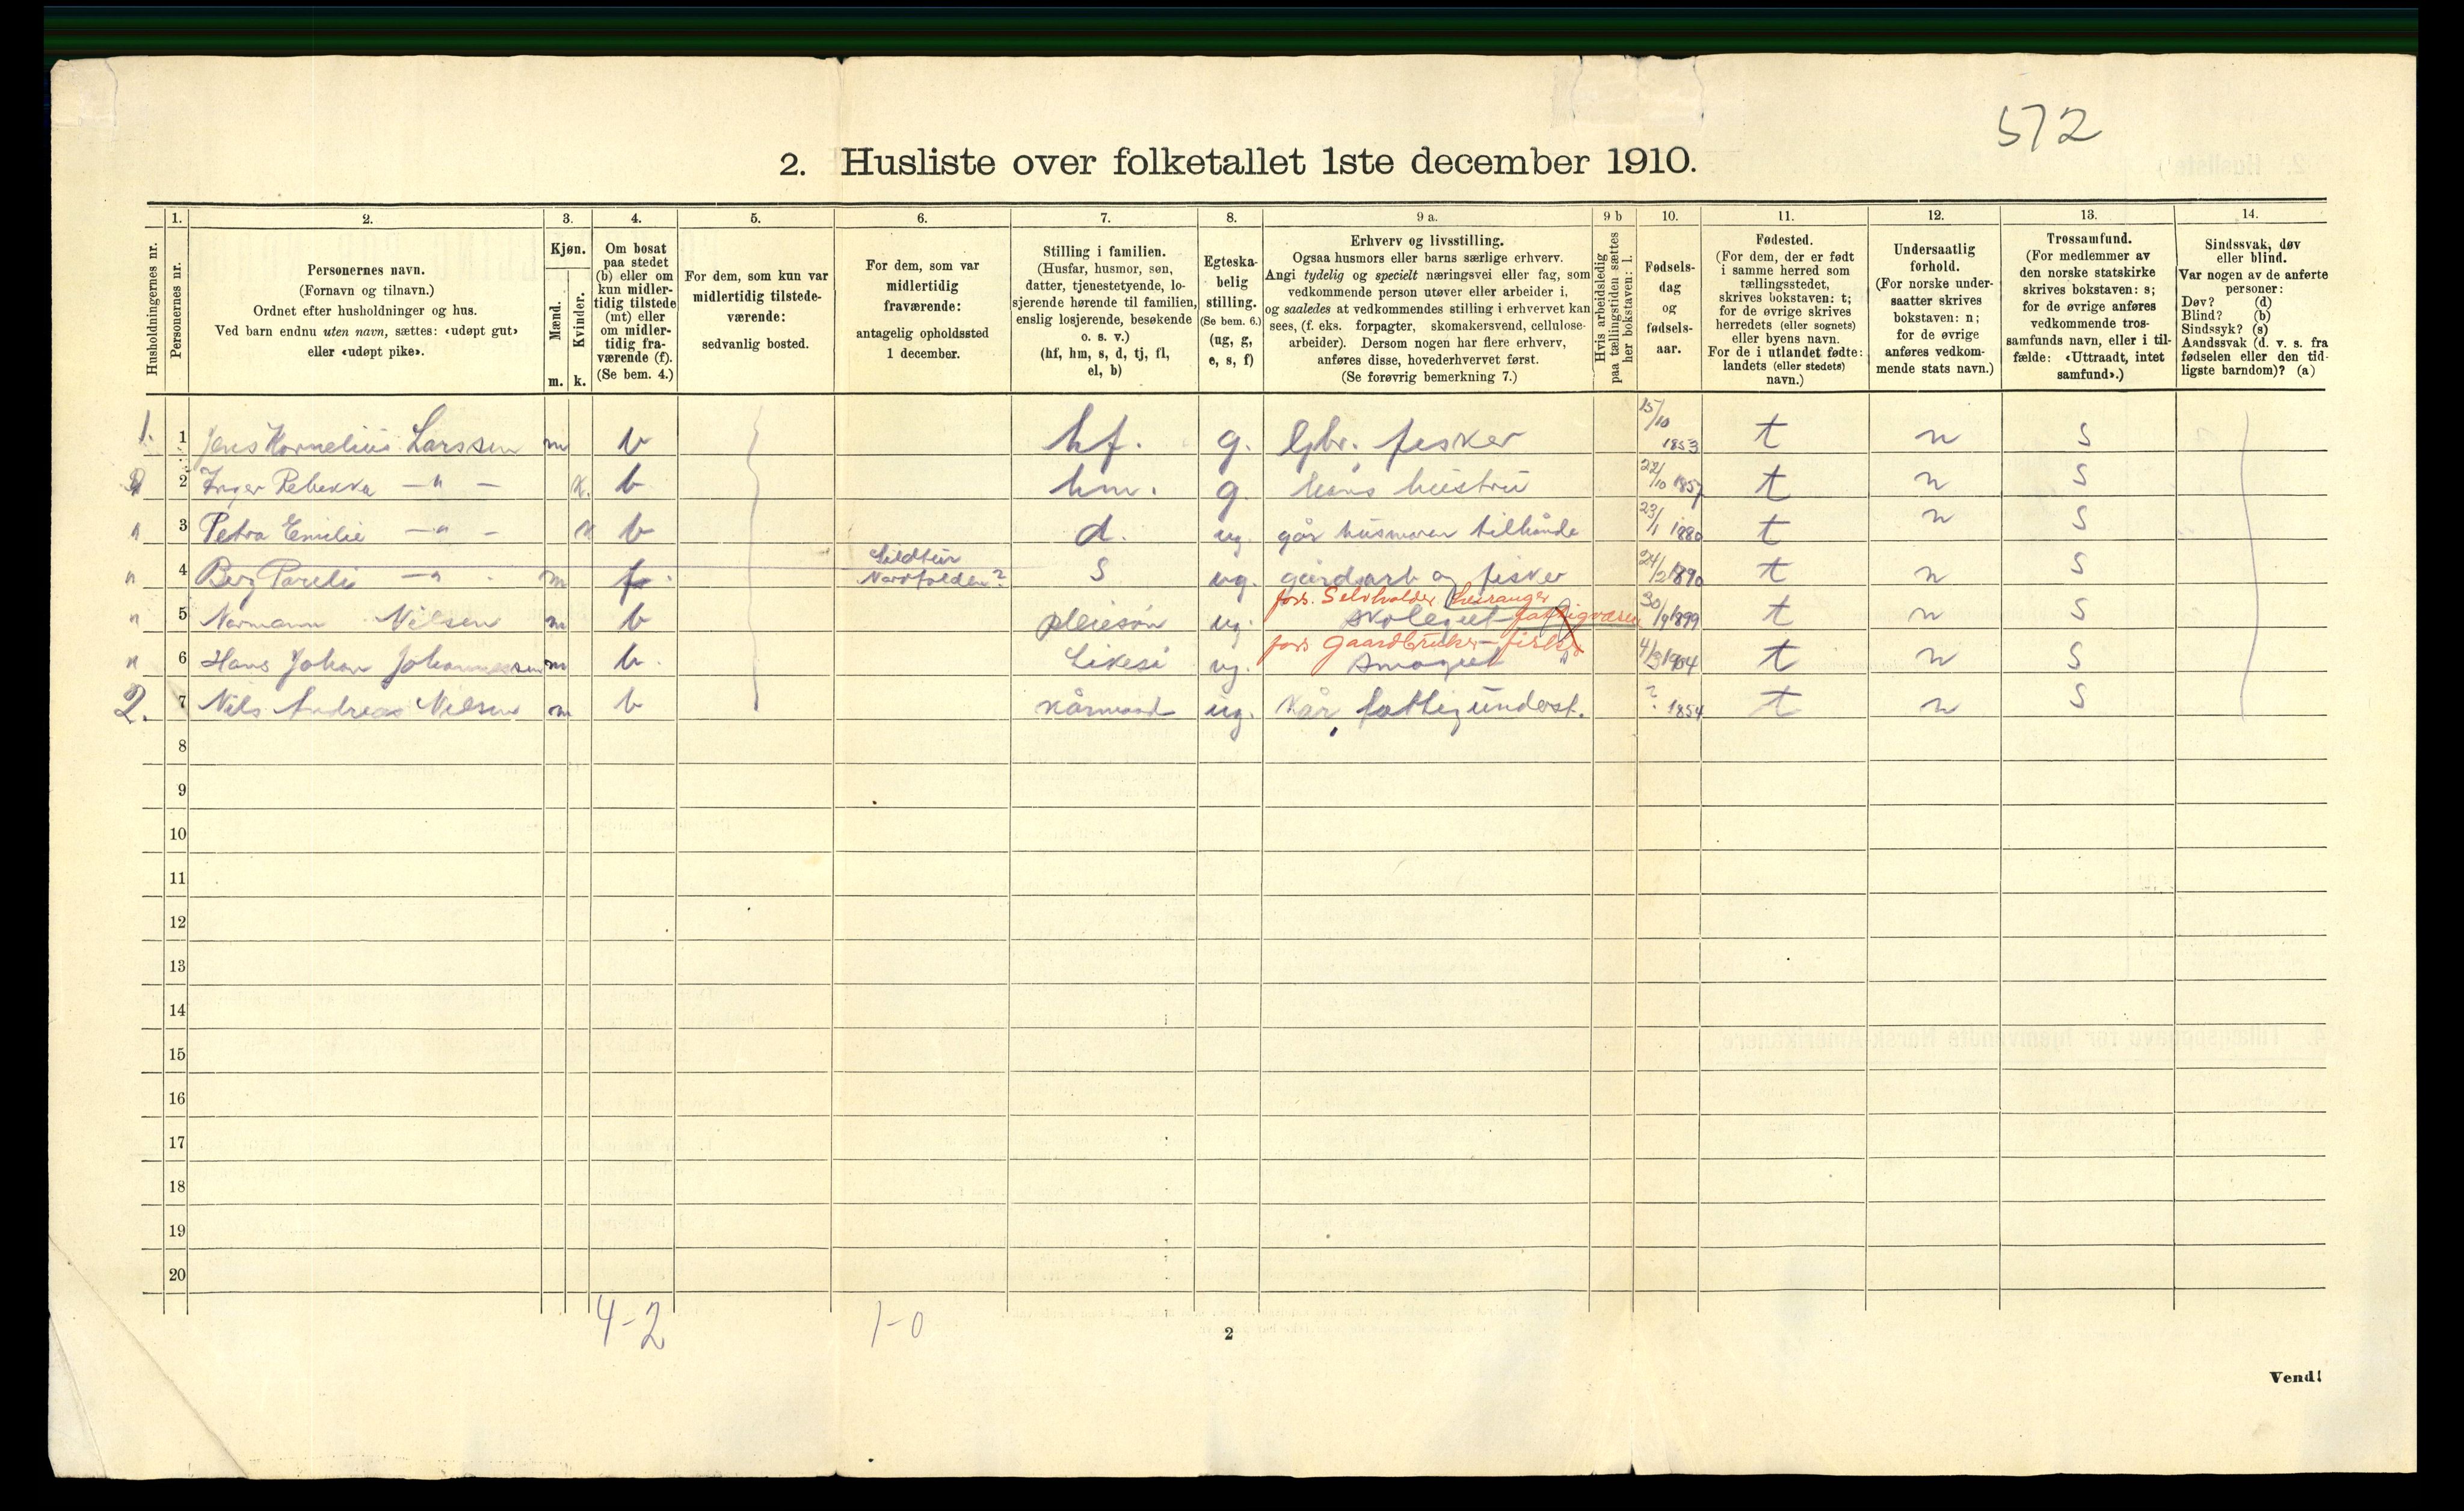 572
2. Husliste over folketallet 1ste december 1910.
Husholdningernes nr.
1.
Personernes nr.
2.
Personernes navn.
(Fornavn og tilnavn.)
Ordnet efter husholdninger og hus.
Ved barn endnu uten navn, sættes: «udøpt gut»
eller «udøpt pike».
3.
Kjøn.
Mænd.
Kvinder.
m. k.
4.
Om bosat
paa stedet
(b) eller om
kun midler-
tidig tilstede
(mt) eller
om midler-
tidig fra-
værende (f).
(Se bem. 4.)
5.
For dem, som kun var
midlertidig tilstede-
værende:
sedvanlig bosted.
6.
For dem, som var
midlertidig
fraværende:
antagelig opholdssted
1 december.
7.
Stilling i familien.
(Husfar, husmor, søn,
datter, tjenestetyende, lo-
sjerende hørende til familien,
enslig losjerende, besøkende
o. s. v.)
(hf, hm, s, d, tj, fl,
el, b)
8.
Egteska-
belig
stilling.
(Se bem. 6.)
(ug, g,
e, s, f)
9 a.
Erhverv og livsstilling.
Ogsaa husmors eller barns særlige erhverv.
Angi tydelig og specielt næringsvei eller fag, som
vedkommende person utøver eller arbeider i,
og saaledes at vedkommendes stilling i erhvervet kan
sees, (f. eks. forpagter, skomakersvend, cellulose-
arbeider). Dersom nogen har flere erhverv,
anføres disse, hovederhvervet først.
(Se forøvrig bemerkning 7.)
9 b
Hvis arbeidsledig
paa tællingstiden sættes
her bokstaven: l.
10.
Fødsels-
dag
og
fødsels-
aar.
11.
Fødested.
(For dem, der er født
i samme herred som
tællingsstedet,
skrives bokstaven: t;
for de øvrige skrives
herredets (eller sognets)
eller byens navn.
For de i utlandet fødte:
landets (eller stedets)
navn.)
12.
Undersaatlig
forhold.
(For norske under-
saatter skrives
bokstaven: n;
for de øvrige
anføres vedkom-
mende stats navn.)
13.
Trossamfund.
(For medlemmer av
den norske statskirke
skrives bokstaven: s;
for de øvrige anføres
vedkommende tros-
samfunds navn, eller i til-
fælde: «Uttraadt, intet
samfund».)
14.
Sindssvak, døv
eller blind.
Var nogen av de anførte
personer:
Døv? (d)
Blind? (b)
Sindssyk? (s)
Aandssvak (d. v. s. fra
fødselen eller den tid-
ligste barndom)? (a)
1. 1 Jens Kornelius Larssen m b hf. g. Gbr. fisker 15/10 1853 t n s
2 Inger Rebekka — " — k. b hm. g. hans hustru 22/10 1857 t n s
" 3 Petra Emilie — " — k b d. ug. går husmoren tilhånde 23/1 1880 t n s
" 4 Berg Pareli — " — m f. Sildtur Nordfolden? s ug. gårdsarb og fisker 24/2 1890 t n s
fors. Selvholder Leiranger fattigvæsen
" 5 Normann Nilsen m b pleiesøn ug. skolegut 30/9 1899 t n s
fors Gaardbruker - fisker
" 6 Hans Johan Johannessen m b. Likeså ug. smagut " 4/3 1904 t n s
2. 7 Nils Andreas Nilsen m b kårmand ug. Kår, fattigunderst. ? 1854 t n s
8
9
10
11
12
13
14
15
16
17
18
19
20
4-2 1-0
2
Vend!